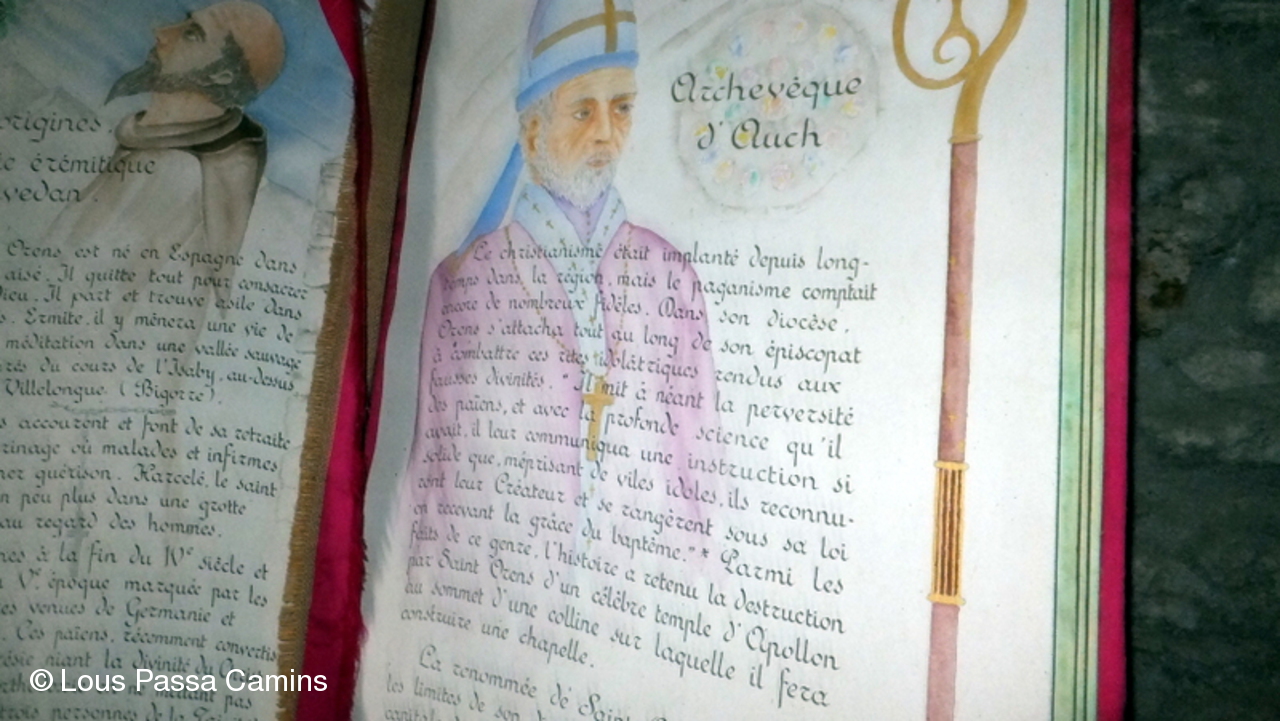 origines.
érémitique
Orens, est né en Espagne dans
aisé. Il quitte tout pour consacrer
Dieu. Il part et trouve asile dans
Ermite, il y mènera une vie de
méditation dans une vallée sauvage
du cours de l'Isaby, au-dessus
Villelongue (Bigorre).
accourent et font de sa retraite
où malades et infirmes
guérison. Harcelé, le saint
peu plus dans une grotte
au regard des hommes.
à la fin du IVe siècle et
Ve, époque marquée par les
venues de Germanie et
Ces païens, récemment convertis
niant la divinité du
pas
trois personnes de la
Archevêque
d'Auch
Le christianisme était implanté depuis long-
temps dans la région, mais le paganisme comptait
encore de nombreux fidèles. Dans son diocèse,
Orens s'attacha tout au long de son épiscopat
à combattre ces rites idolâtriques rendus aux
fausses divinités. "Il mit à néant la perversité
des païens, et avec la profonde science qu'il
avait, il leur communiqua une instruction si
solide que, méprisant de viles idoles, ils reconnu-
rent leur Créateur et se rangèrent sous sa loi
en recevant la grâce du baptême."* Parmi les
faits de ce genre, l'histoire a retenu la destruction
par Saint Orens d'un célèbre temple d'Apollon
au sommet d'une colline sur laquelle il fera
construire une chapelle.
La renommée de Saint
les limites de son
© Lous Passa Camins